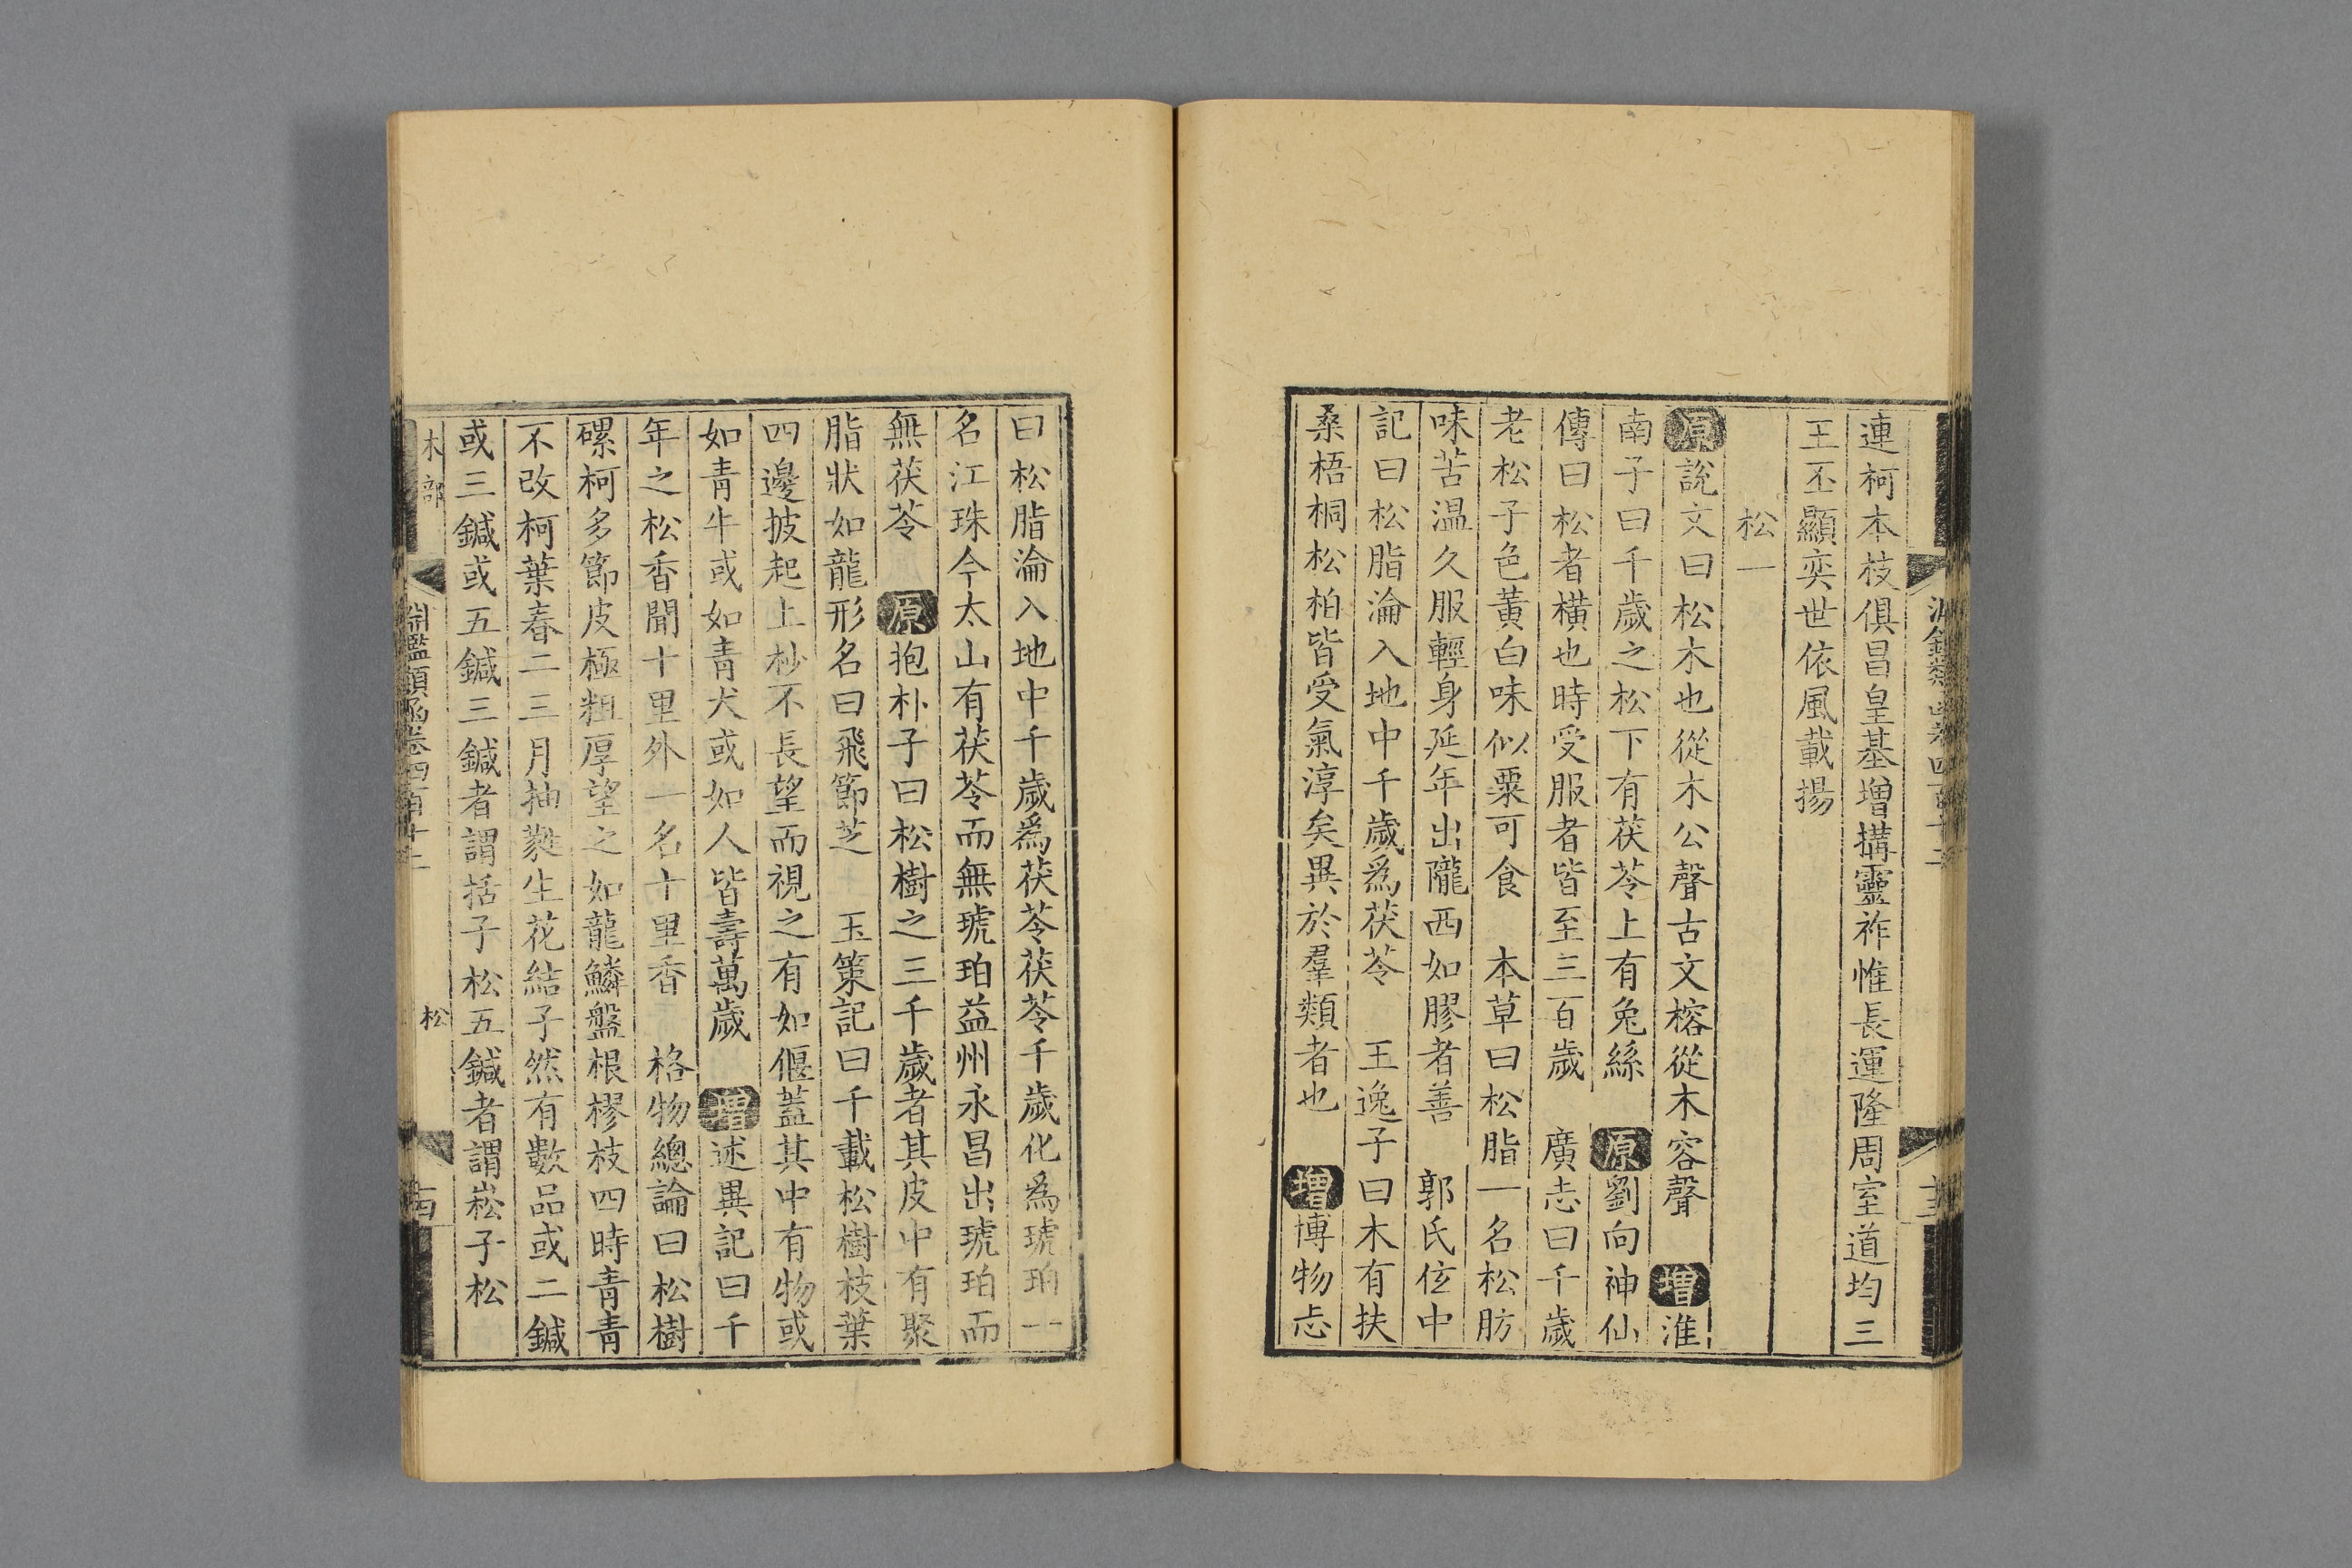 連柯本枝俱昌皇基增搆靈祚惟長運隆周室道均三
王丕顯奕世依風載揚
松一
原說文曰松木也從木公聲古文㮤從木容聲 增淮
南子曰千歲之松下有茯苓上有兔絲 原劉向神仙
傳曰松者橫也時受服者皆至三百歲 廣志曰千歲
老松子色黃白味似粟可食 本草曰松脂一名松肪
味苦温久服輕身延年出隴西如膠者善 郭氏伭中
記曰松脂淪入地中千歲爲茯苓 王逸子曰木有扶
桑梧桐松柏皆受氣淳矣異於羣類者也 增博物志
曰松脂淪入地中千歲爲茯苓茯苓千歲化爲琥珀一
名江珠今太山有茯苓而無琥珀益州永昌出琥珀而
無茯苓 原抱朴子曰松樹之三千歲者其皮中有聚
脂狀如龍形名曰飛節芝 玉策記曰千載松樹枝葉
四邊披起上杪不長望而視之有如偃蓋其中有物或
如青牛或如青犬或如人皆壽萬歲 增述異記曰千
年之松香聞十里外一名十里香 格物總論曰松樹
磥柯多節皮極粗厚望之如龍鱗盤根樛枝四時青青
不改柯葉春二三月抽蕤生花結子然有數品或二鍼
或三鍼或五鍼三鍼者謂括子松五鍼者謂崧子松
木部
淵鑑類函卷四百十二
松